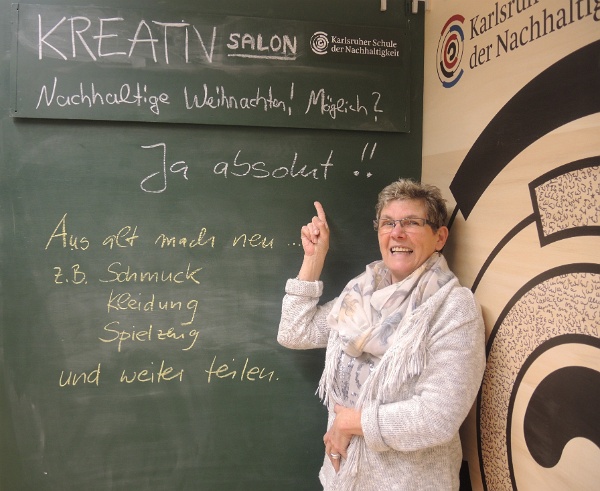 KREATIV SALON
Karlsruher Schule
der Nachhaltigkeit
Nachhaltige Weihnachten! Möglich?
Ja absolut!!
Aus alt mach neu...
z.B. Schmuck
Kleidung
Spielzeug
und weiter teilen.
Karlsruher S
der Nachhaltigke